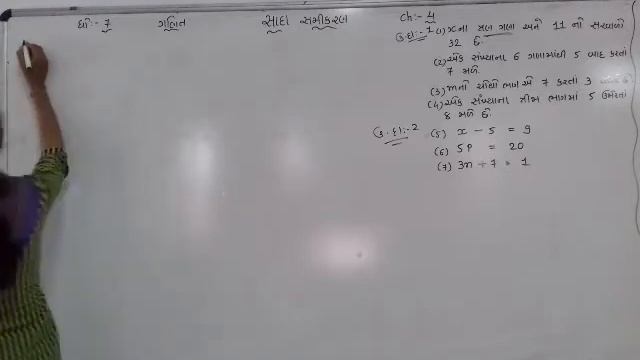 ધો:- 7 ગણિત સાદા સમીકરણ Ch:- 4
ઉ.દા:-1 (1) x ના ત્રણ ગણા અને 11 નો સરવાળો
32 છે.
(2) એક સંખ્યાના 6 ગણામાંથી 5 બાદ કરતાં
7 મળે
(3) m નો ચોથો ભાગ એ 7 કરતાં 3
(4) એક સંખ્યાના ત્રીજા ભાગમાં 5 ઉમેરતાં
8 મળે છે.
ઉ.દા:-2 (5) x - 5 = 9
(6) 5p = 20
(7) 3n + 7 = 1